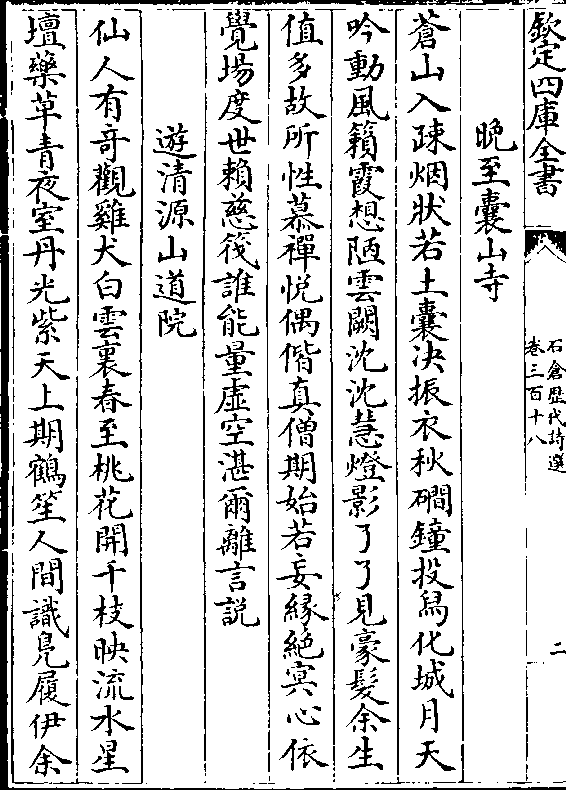 欽定四庫全書
石倉歷代詩選
卷三百十八
二
晚至囊山寺
蒼山入疎烟狀若土囊决振衣秋磵鐘投舄化城月天
吟動風籟霞想陋雲闕沈沈慧燈影了了見豪髮余生
值多故所性慕禪悦偶偕真僧期始若妄緣絶冥心依
覺場度世賴慈筏誰能量虛空湛爾離言説
遊清源山道院
仙人有奇觀雞犬白雲裏春至桃花開千枝映流水星
壇藥草青夜室丹光紫天上期鶴笙人間識鳬履伊余